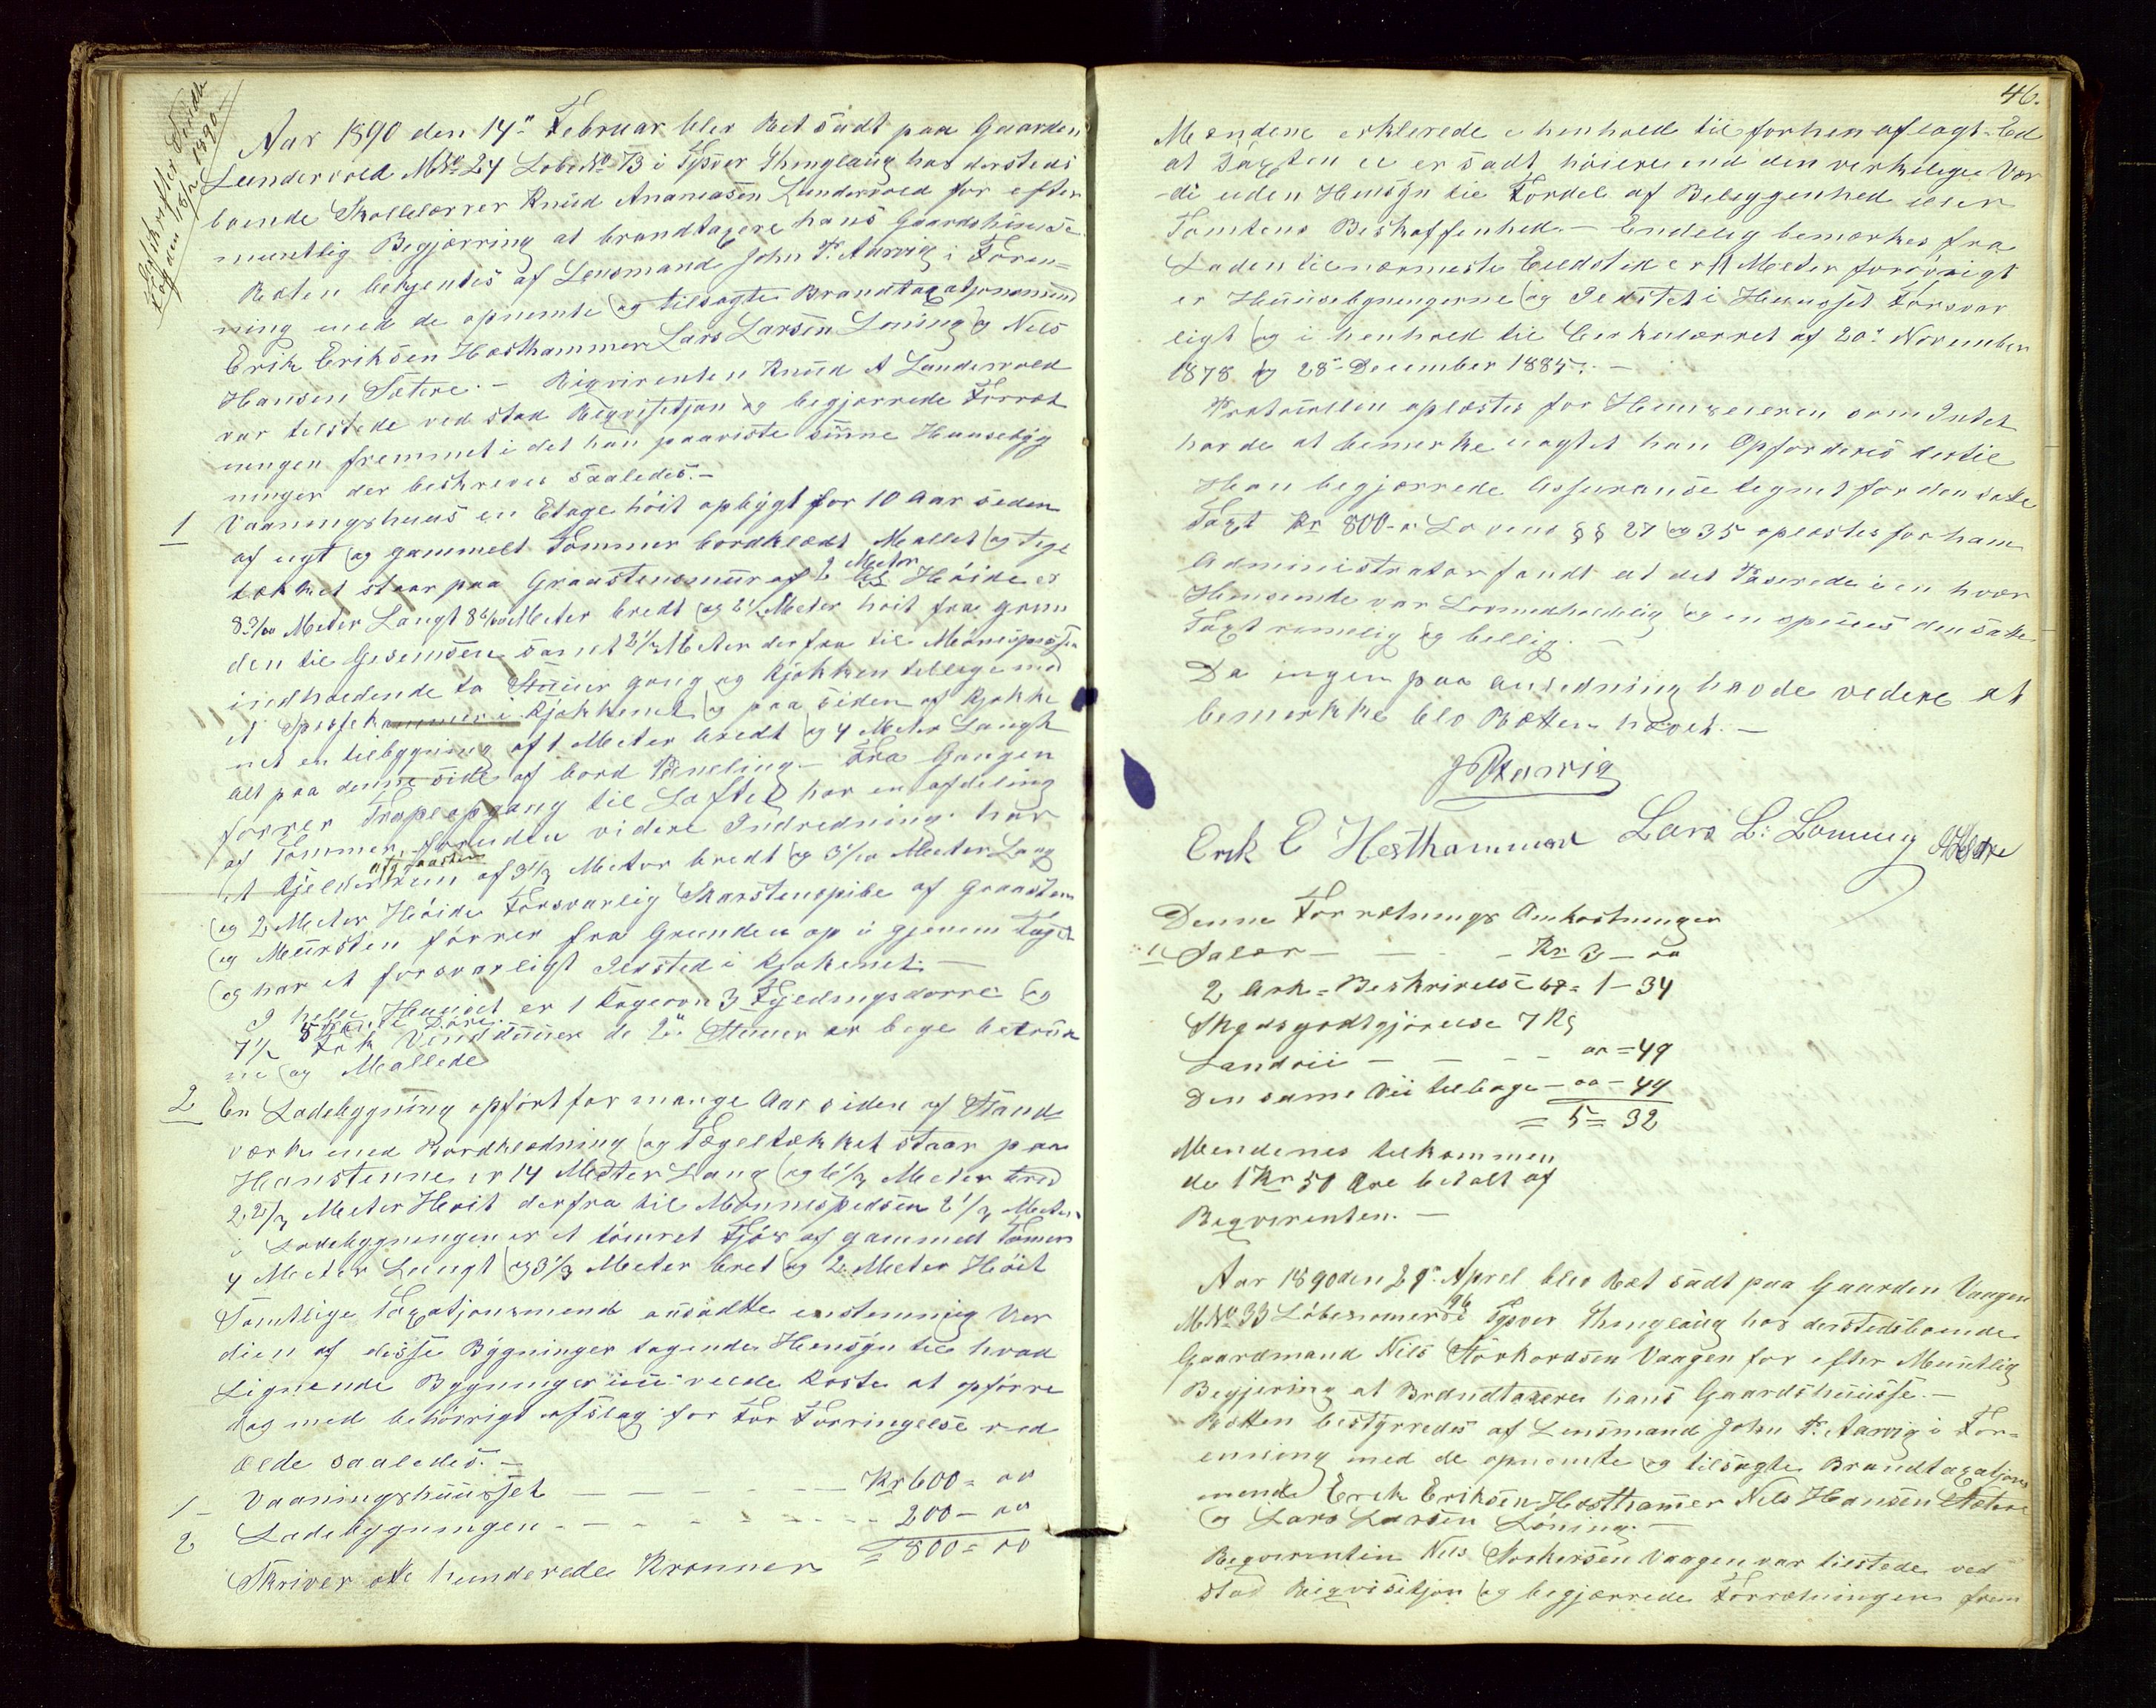 Afskrifter
Tagen 18/2 1890
Aar 1890 den 14" Februar blev Ret sadt paa Gaarden
Lundervold MNo 24 LobeNo 73 i Tysver Thinglaug hos dersteds
boende Skollelærrer Knud Ananiasen Lundervold for efter
muntlig Begjærring at brandtaxere hans Gaardshuuse.
Reten bekjentes af Lensmand John P. Aarvig i Foren-
ning med de opnemte og tilsagte Brandtaxatjonsmænd
Erik Eriksen Hesthammer Lars Larsen Loning og Nils
Hansen Sætere. - Reqvirenten Knud A Lundervold
var tilstede ved stad Reqvisitjon og begjærrede Forret
ningen fremmet i det han paaviste sinne Huusebyg
ninger der beskreves saaledes. -
1 Vaaningshuus en Etage höit opbygt for 10 Aar seden
af nyt og gammelt Tømmer bordklædt Mallet og Tege
tækket staar paa Graastensmuur af 2 Meter Höide er
Meter Langt Meter bredt og 2½ Meter höit fra grun
den til Gesemsen samt 2½ Meter derfra til Mønespidsen
indholdende to Stuuer gang og Kjøkken tellige med
et Speissekammer i Kjøkkenet og paa siden af Kjøkke
net en tilbygning af 1 Meter bredt og 4 Meter Langt
alt paa denne side af bord Paneling. - Fra Gangen
førrer Trapeopgang til Loftet har en afdeling
af Tømmer foruden videre Indredning. har
et Kjelderrum af graasten af 3⅓ Meter bredt og Meter Lang
og 2 Meter Höide Forsvarlig Skarstenspibe af Graasten
og Muursten førrer fra Grunden op i gjenem Taget
og har et forsvarligt Ildsted i Kjøkenet. -
I hele Huuset er 1 Kageovn 3 Fyldingsdørre og
5 Døre.
7½ Fak Vinduuer de 2" Stuuer er bege betruk
ne og Mallede
2 En Ladebygning opfört for mange Aar siden af Stand-
værk med Bordklædning og Tægeltækket staar paa
Hønstenne er 14 Metter Lang og 6⅓ Meter bred
2⅔ Meter Höit derfra til Mønnespidsen 2⅓ Meter
i Ladebygningen er et tömret Fjös af gammelt Tømer
4 Meeter Langt og 3⅓ Meter bret og 2 Meeter Höit
Samtlige Taxatjonsmænd ansadtte enstemmig Vær
dien af disse Bygninger tagende Hensyn til hvad
Lignende Bygninger vilde Koste at opførre
og med behörrigt afslag for For Forringelse ved
ælde saaledes. -
1 - Vaaningshuusset - - - - - Kr 600 = 00
2 Ladebygningen - - - - - 200 - 00
= 800 = 00
Skriver otte hunderede Kronner
46.
Mændene erklerede i henhold til forhen aflagt Ed
at Taxten ei er sadt höiere end den verkelige Vær
-di uden Hensyn til Fordel af Beleggenhed eller
Tomtens Beskaffenhed. - Endelig bemærkes fra
Laden til nærmeste Ildsted er 11 Meeter forövrigt
er Huusebygningerne og Ildstet i Huusset Forsvar
ligt og i henhold til Cirkulærret af 20de November
1878 og 28de December 1885. -
Protocollen oplæstes for Huuseieren som Intet
havde at bemerke uagtet han Opforderes dertil
Han begjærrede Assuranse tegnet for den satte
Taxt Kr 800 - Lovens §§ 27 og 35 oplæstes for ham
Administrator fandt at det Paserede i en hver
Hensende var Lovmedholdelig og en spesies den satte
Taxt rimelig og billig. -
Da ingen paa anledning havde vedere at
bemerkke blev Retten hævet. -
J P Aarvig
Erik E Hesthammer Lars L: Loning
Denne Forretnings Omkostninger
1 Salær - - - - Kr 3 - 00
2 Ark = Beskrivelse 67 = 1 - 34
Skydsgodtgjørelse 7 Kg
Landvii - - - - 00 = 49
Den same Vii tilbage - 00 - 49
= 5 = 32
Mendenes tilkommen
de 1 Kr 50 Øre betalt af
Reqvirenten. -
Aar 1890 den 29de Aprel blev Ret sadt paa Gaarden Vaagen
MNo 33 Löbenumer 96 i Tysver Thinglaug hos derstedsboende
Gaardmand Nils Storkordsen Vaagen for efter Muntlig
Begjering at Brandtaxere hans Gaardshuusse. -
Retten bestyrredes af Lensmand John P. Aarvig i For-
enning med de opnemte og tilsagte Brandtaxatjons
mend Erik Eriksen Hesthamer Nils Hansen Sætere
og Lars Larsen Löning. -
Reqverentin Nils Storkersen Vaagen var tilstede ved
stad Reqvisitjon og begjærrede Forretningen frem